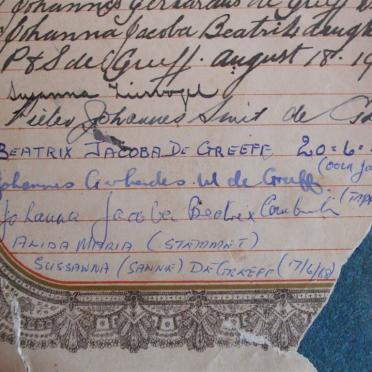 Johannes Gerhardus de Greff
Johanna Jacoba Beatrix daugh
P & S de Greeff. August 18. 19
Susanna
Pieter Johannes Smit de
BEATRIX JACOBA DE GREEFF 20-6-
Johannes Gerhardes. M de Greeff.
Johanna Jacoba Beatrix
ALIDA MARIA (STEMMET)
SUSSANNA (SANNIE) DE GREEFF (17/6/68)